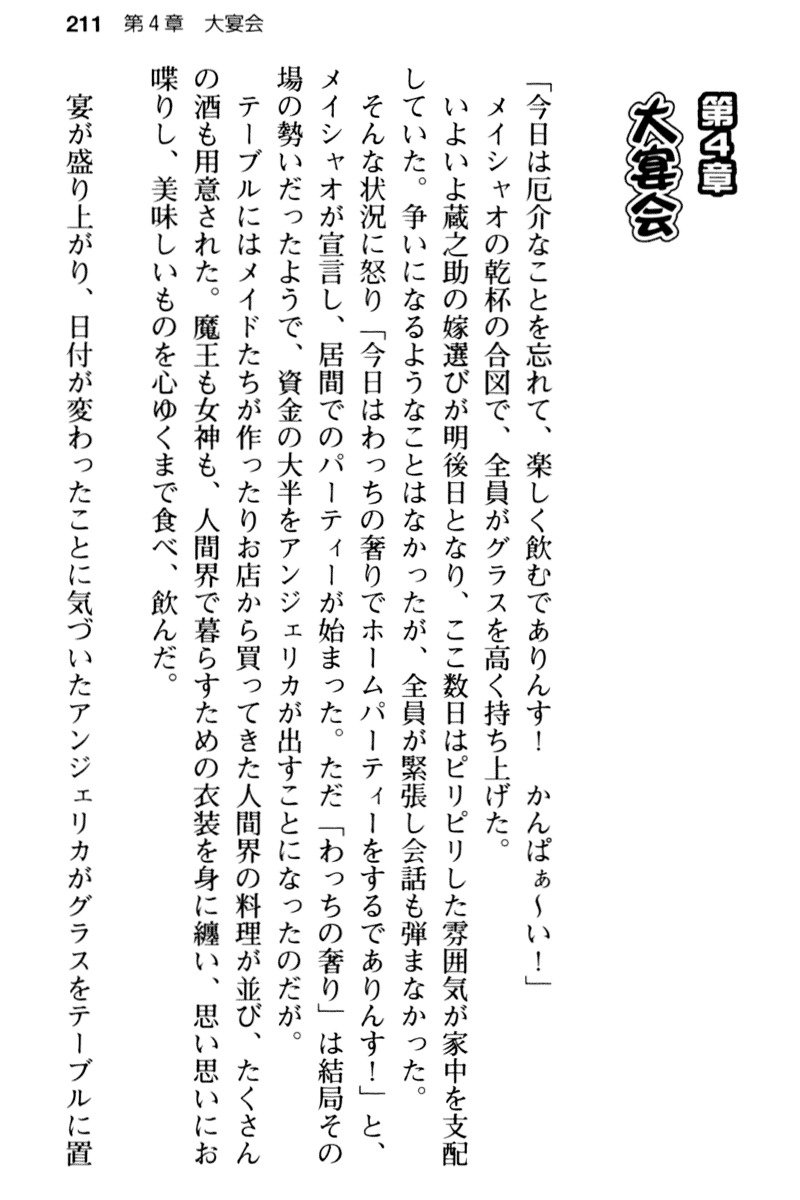 211 第4章 大宴会
第4章
大宴会
「今日は厄介なことを忘れて、楽しく飲むでありんす！　かんぱぁ～い！」
　メイシャオの乾杯の合図で、全員がグラスを高く持ち上げた。
　いよいよ蔵之助の嫁選びが明後日となり、ここ数日はピリピリした雰囲気が家中を支配
していた。争いになるようなことはなかったが、全員が緊張し会話も弾まなかった。
　そんな状況に怒り「今日はわっちの奢りでホームパーティーをするでありんす！」と、
メイシャオが宣言し、居間でのパーティーが始まった。ただ「わっちの奢り」は結局その
場の勢いだったようで、資金の大半をアンジェリカが出すことになったのだが。
　テーブルにはメイドたちが作ったりお店から買ってきた人間界の料理が並び、たくさん
の酒も用意された。魔王も女神も、人間界で暮らすための衣装を身に纏い、思い思いにお
喋りし、美味しいものを心ゆくまで食べ、飲んだ。
　宴が盛り上がり、日付が変わったことに気づいたアンジェリカがグラスをテーブルに置